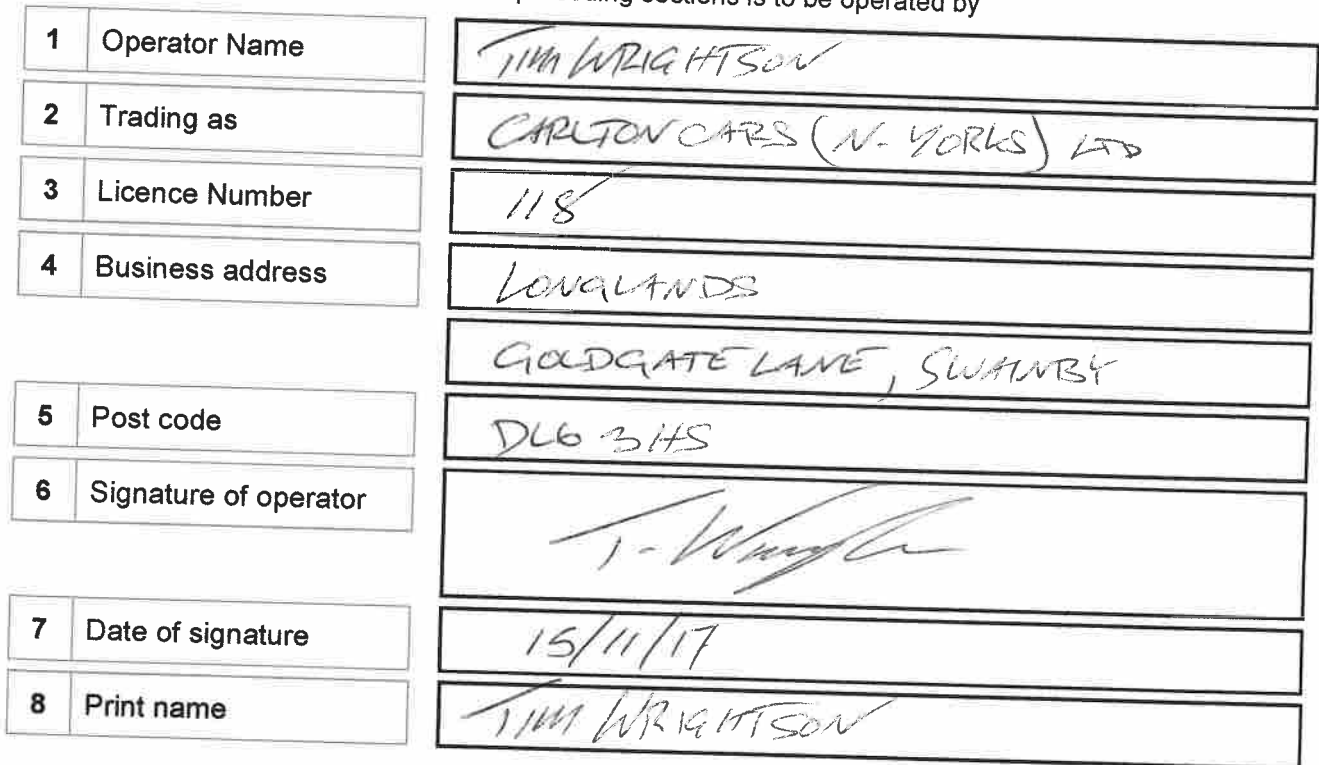 sections is to be operated by
1 Operator Name TIM WRIGHTSON
2 Trading as CARLTON CARS (N. YORKS) LTD
3 Licence Number 118
4 Business address LONGLANDS
GOLDGATE LANE, SWAINBY
5 Post code DL6 3HS
6 Signature of operator T. Wrightson
7 Date of signature 15/11/17
8 Print name TIM WRIGHTSON